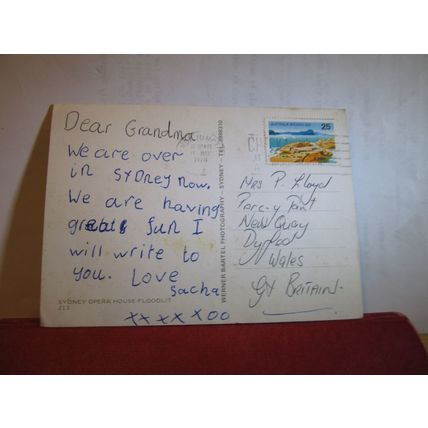 Dear Grandma
We are over
in SYDney now.
We are having
great fun I
will write to
you. Love
Sacha
xx x x x oo
SYDNEY OPERA HOUSE FLOODLIT
WERNER BARTEL PHOTOGRAPHY - SYDNEY - TEL.
AUSTRALIA
25
Mrs P. Lloyd
Parc-y Pant
New Quay
Dyfed
Wales
Gt BRITAIN.